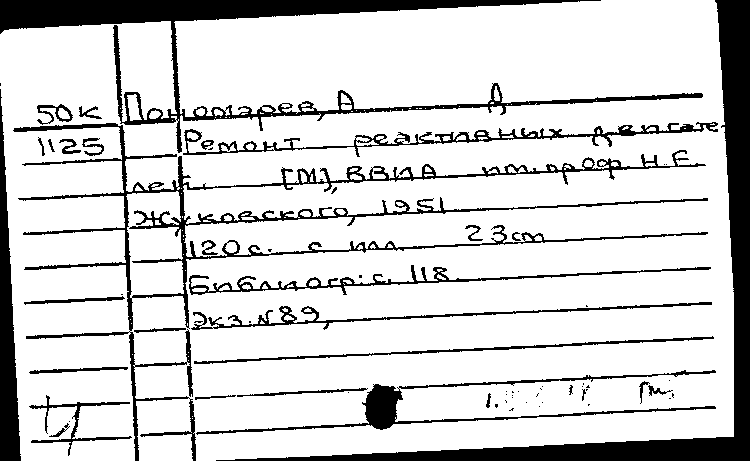 50К Пономарев, А Д
1125 Ремонт реактивных двигате-
лей. [М], ВВИА им. проф. Н.Е.
Жуковского, 1951
120с. с илл. 23cm
Библиогр: с. 118
Экз. №89,